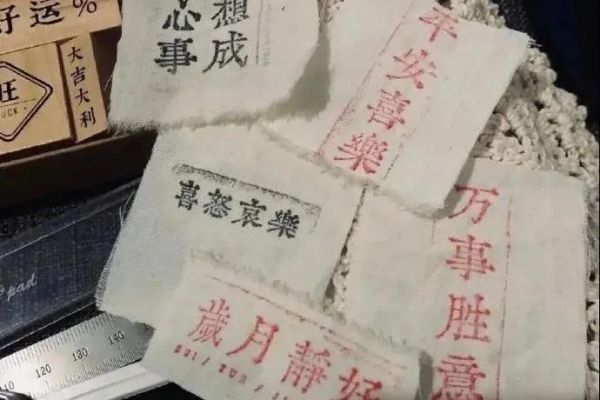 好运%
大吉大利
旺
想成
心事
平安喜樂
喜怒哀樂
万事胜意
歲月靜好
pad
140
130
120
110